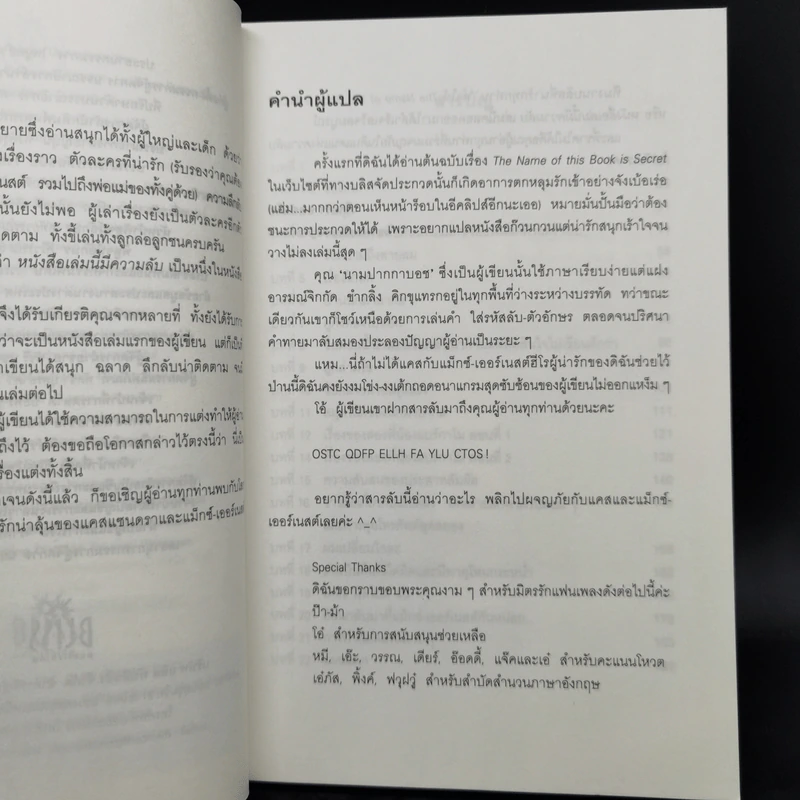 ายซึ่งอ่านสนุกได้ทั้งผู้ใหญ่และเด็ก
เรื่องราว ตัวละครที่น่ารัก (รับรองว่าคุณต้อง
นสต์ รวมไปถึงพ่อแม่ของทั้งคู่ด้วย)
นั้นยังไม่พอ ผู้เล่าเรื่องยังเป็นตัวละครอีก
ดตาม ทั้งขี้เล่นทั้งลูกล่อลูกชนครบครัน
หนังสือเล่มนี้มีความลับ เป็นหนึ่งในหนังสือ
จึงได้รับเกียรติคุณจากหลายที่ ทั้งยังได้รับการ
ว่าจะเป็นหนังสือเล่มแรกของผู้เขียน แต่ก็เป็น
เขียนได้สนุก ฉลาด ลึกลับน่าติดตาม จน
นเล่มต่อไป
ผู้เขียนได้ใช้ความสามารถในการแต่งทำให้ผู้อ่าน
ถึงไว้ ต้องขอถือโอกาสกล่าวไว้ตรงนี้ว่า นี่เป็น
รื่องแต่งทั้งสิ้น
เจนดังนี้แล้ว ก็ขอเชิญผู้อ่านทุกท่านพบกับ
รักน่าลุ้นของแคสแซนดราและแม็กซ์-เออร์เนสต์
คำนำผู้แปล
ครั้งแรกที่ดิฉันได้อ่านต้นฉบับเรื่อง The Name of this Book is Secret
ในเว็บไซต์ที่ทางบลิสจัดประกวดนั้นก็เกิดอาการตกหลุมรักเข้าอย่างจังเบ้อเร่อ
(แฮ่ม...มากกว่าตอนเห็นหน้าร็อบในอีคลิปส์อีกนะเออ) หมายมั่นปั้นมือว่าต้อง
ชนะการประกวดให้ได้ เพราะอยากแปลหนังสือก๊วนกวนแต่น่ารักสนุกเร้าใจจน
วางไม่ลงเล่มนี้สุด ๆ
คุณ 'นามปากกาบอช' ซึ่งเป็นผู้เขียนนั้นใช้ภาษาเรียบง่ายแต่แฝง
อารมณ์จิกกัด ขำกลิ้ง คิกขุแทรกอยู่ในทุกพื้นที่ว่างระหว่างบรรทัด ทว่าขณะ
เดียวกันเขาก็โชว์เหนือด้วยการเล่นคำ ใส่รหัสลับ-ตัวอักษร ตลอดจนปริศนา
คำทายมาลับสมองประลองปัญญาผู้อ่านเป็นระยะ ๆ
แหม...นี่ถ้าไม่ได้แคสกับแม็กซ์-เออร์เนสต์ฮีโร่ผู้น่ารักของดิฉันช่วยไว้
ป่านนี้ดิฉันคงยังงมโข่ง-งงเต้กถอดอนาแกรมสุดซับซ้อนของผู้เขียนไม่ออกแหงม ๆ
โอ้ ผู้เขียนเขาฝากสารลับมาถึงคุณผู้อ่านทุกท่านด้วยนะคะ
OSTC QDFP ELLH FA YLU CTOS !
อยากรู้ว่าสารลับนี้อ่านว่าอะไร พลิกไปผจญภัยกับแคสและแม็กซ์-
เออร์เนสต์เลยค่ะ ^_^
Special Thanks
ดิฉันขอกราบขอบพระคุณงาม ๆ สำหรับมิตรรักแฟนเพลงดังต่อไปนี้ค่ะ
ป๊า-ม้า
โอ๋ สำหรับการสนับสนุนช่วยเหลือ
หมี, เอ๊ะ, วรรณ, เดียร์, อ๊อดดี้, แจ๊คและเอ๋ สำหรับคะแนนโหวต
เอ๋ภัส, พิ้งค์, ฟวุฝวู้ สำหรับสำบัดสำนวนภาษาอังกฤษ